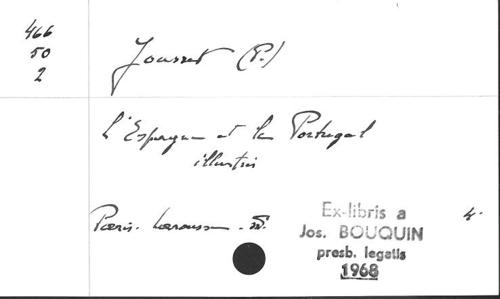 466
50
2
Jousset (P.)
L'Espagne et le Portugal
illustrés
Paris. Larousse. sd.
4°
Ex-libris a
Jos. BOUQUIN
presb. legatis
1968